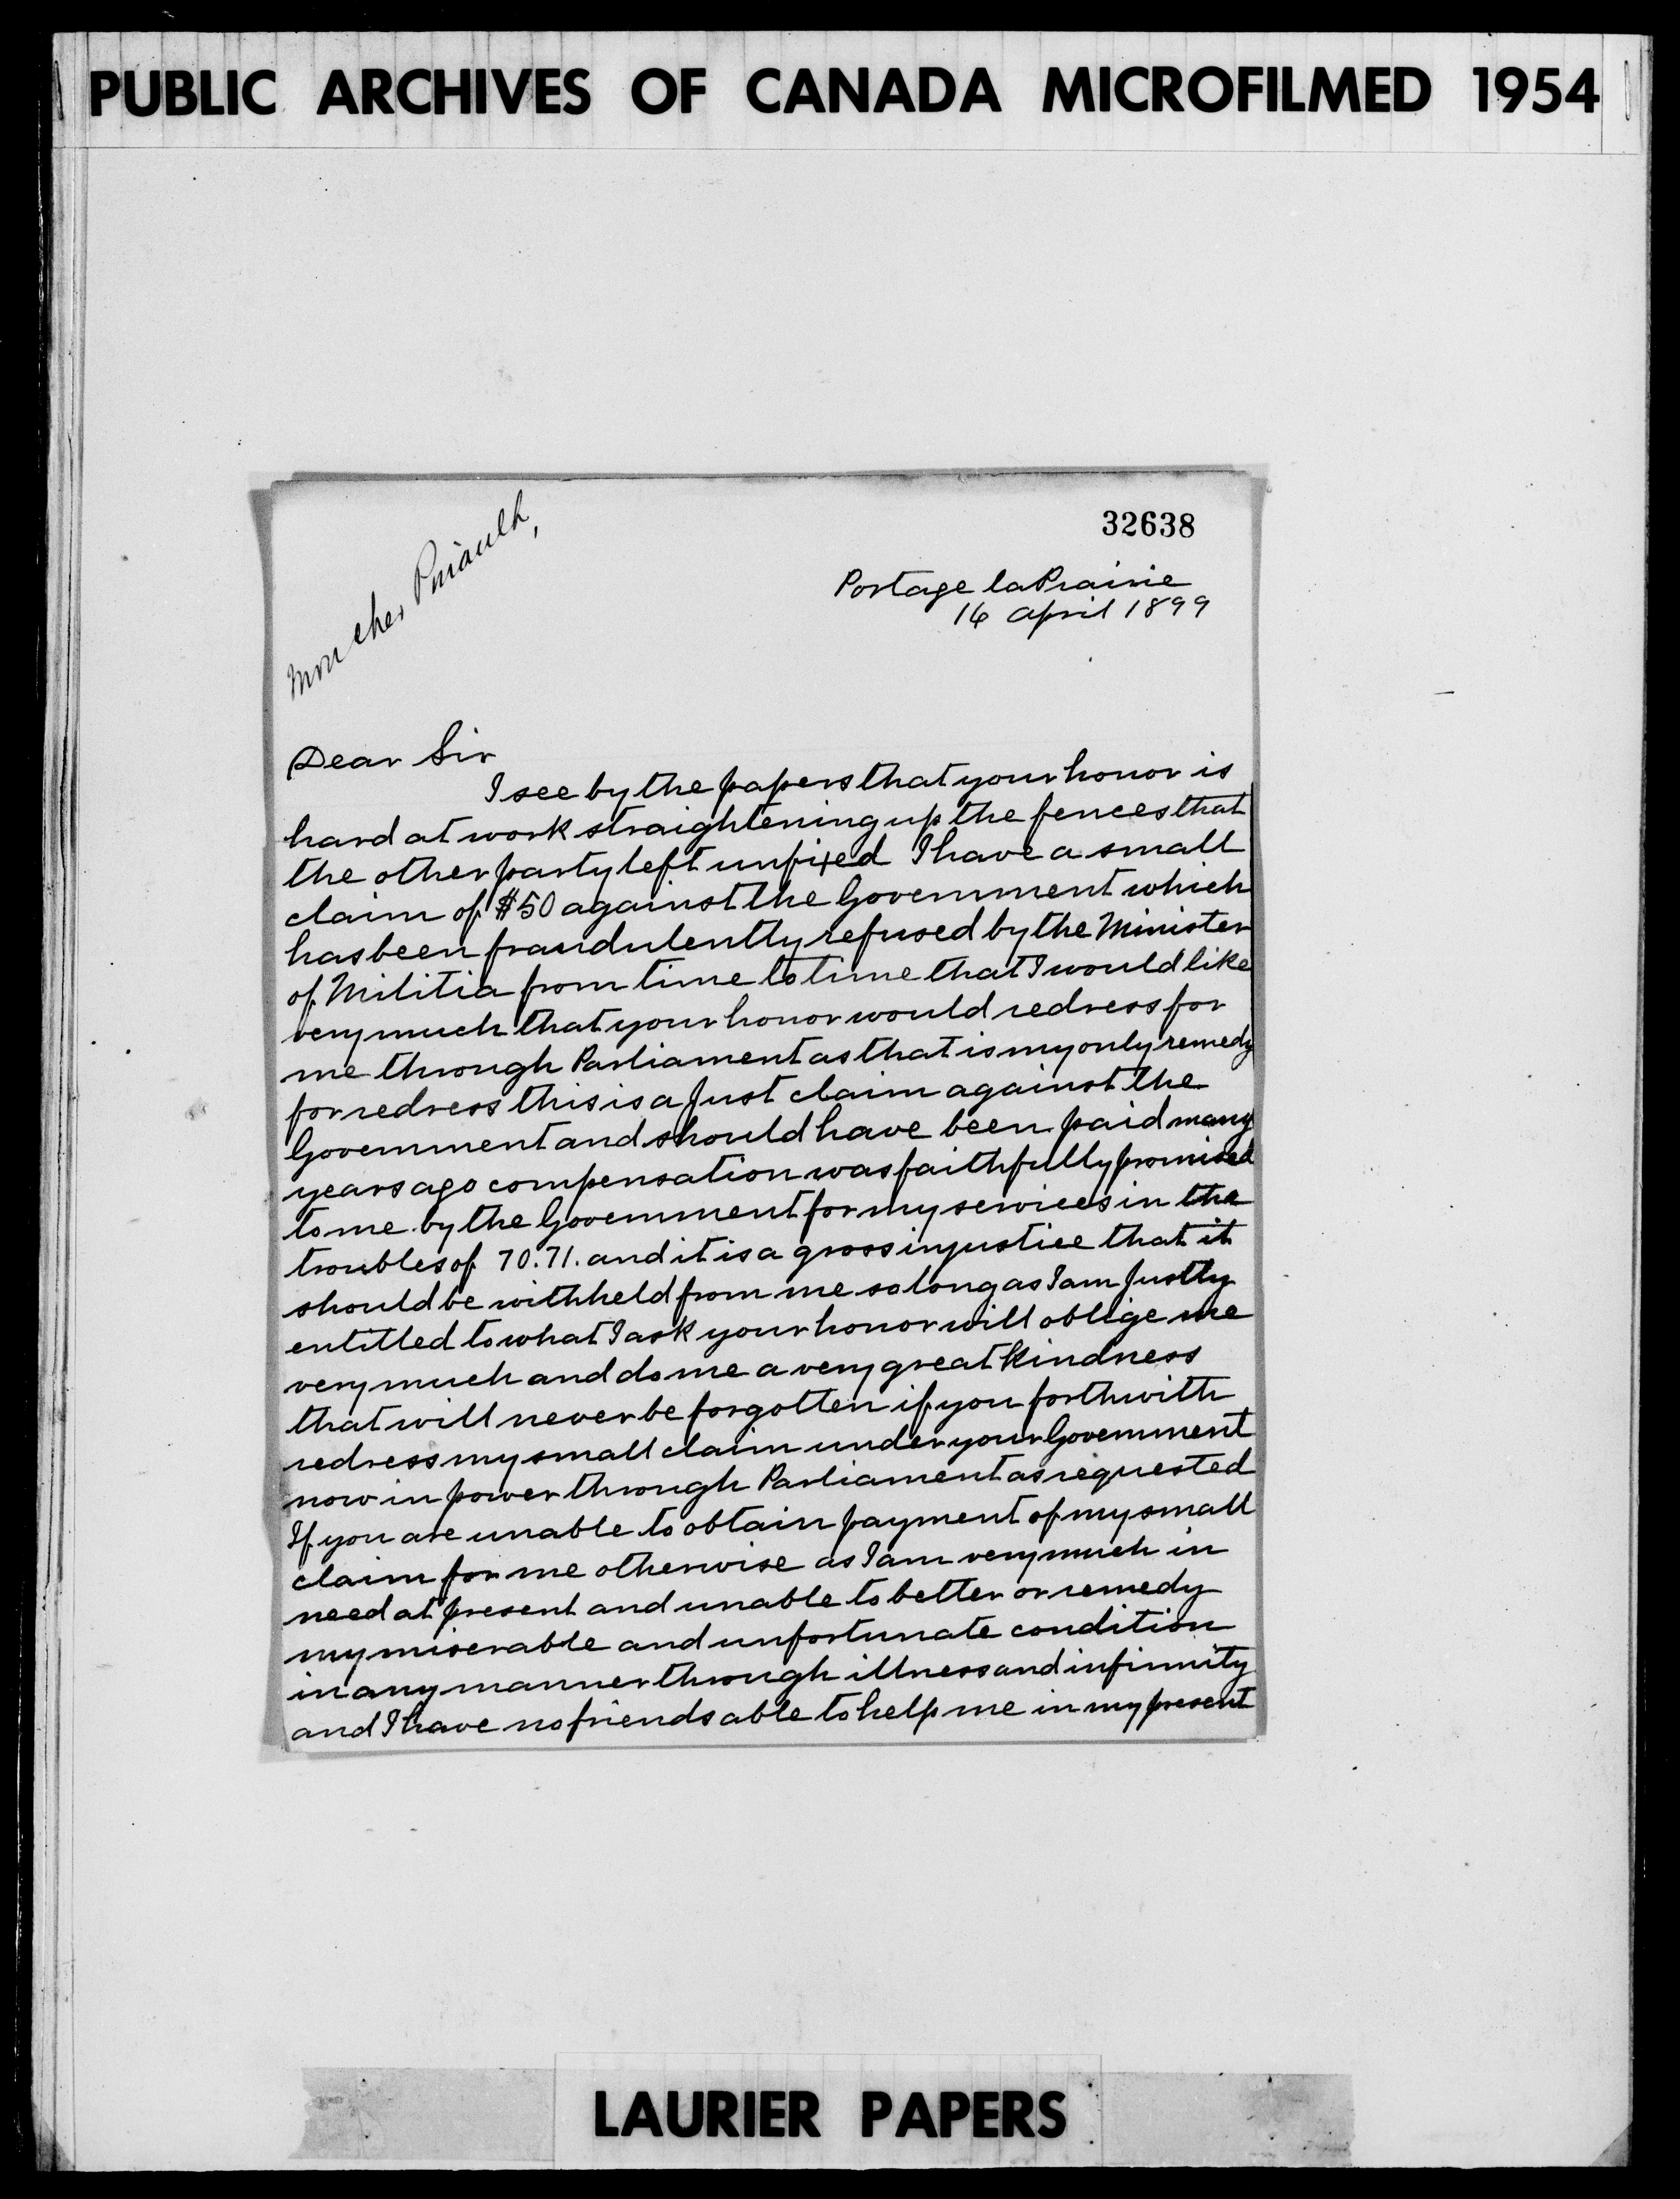 PUBLIC ARCHIVES OF CANADA MICROFILMED 1954
32638
Mon cher
Portage la Prairie
14 April 1899
Dear Sir
I see by the papers that your honor is
hard at work straightening up the fences that
the other party left unfixed I have a small
claim of $50 against the Government which
has been fraudulently refused by the Minister
of Militia from time to time that I would like
very much that your honor would redress for
me through Parliament as that is my only remedy
for redress this is a Just claim against the
Government and should have been paid many
years ago compensation was faithfully promised
to me by the Government for my services in the
troubles of 70.71. and it is a gross injustice that it
should be withheld from me so long as I am Justly
entitled to what I ask your honor will oblige me
very much and do me a very great kindness
that will never be forgotten if you forthwith
redress my small claim under your Government
now in power through Parliament as requested
If you are unable to obtain payment of my small
claim for me otherwise as I am very much in
need at present and unable to better or remedy
my miserable and unfortunate condition
in any manner through illness and infirmity
and I have no friends able to help me in my present
LAURIER PAPERS